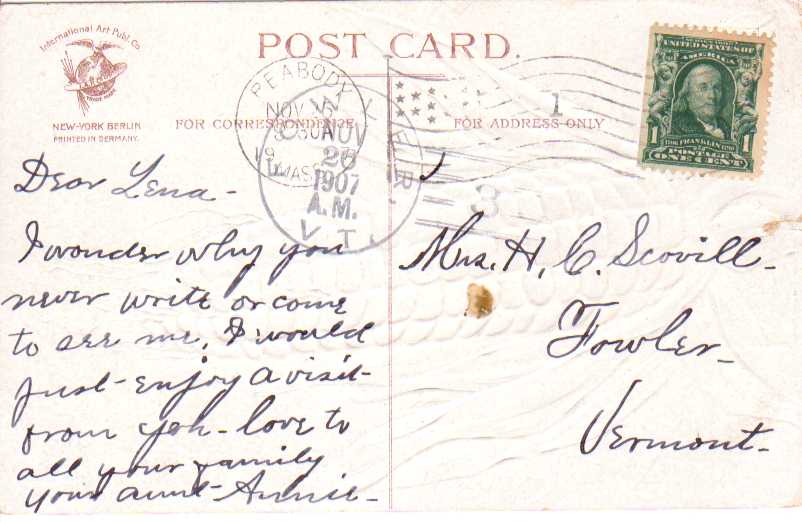 International Art Publ. Co.
POST CARD.
NEW-YORK BERLIN
PRINTED IN GERMANY.
FOR CORRESPONDENCE
FOR ADDRESS ONLY
PEABODY
NOV
MASS.
NOV
26
1907
A.M.
VT.
1
3
UNITED STATES OF
AMERICA
1706 FRANKLIN 1790
1 POSTAGE 1
ONE CENT
Dear Lena-
I wonder why you
never write or come
to see me, I would
just-enjoy a visit-
from you-love to
all your family
your aunt-Annie-
Mrs. H. C. Scovill-
Fowler-
Vermont-